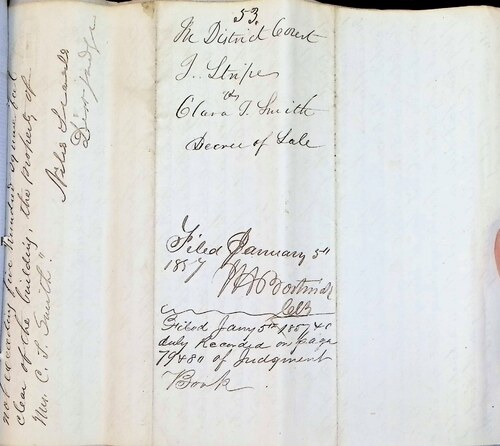 53.
The District Court
J. Stripe
vs
Clara T. Smith
Decree of Sale
Filed January 5th
1857
Clk
Filed Jany 5th 1857 &
duly Recorded on page
79 & 80 of Judgment
Book
not exceeding five hundred square feet
clear of the building, the property of
Mrs. C. T. Smith"
Niles Searls
Dist Judge